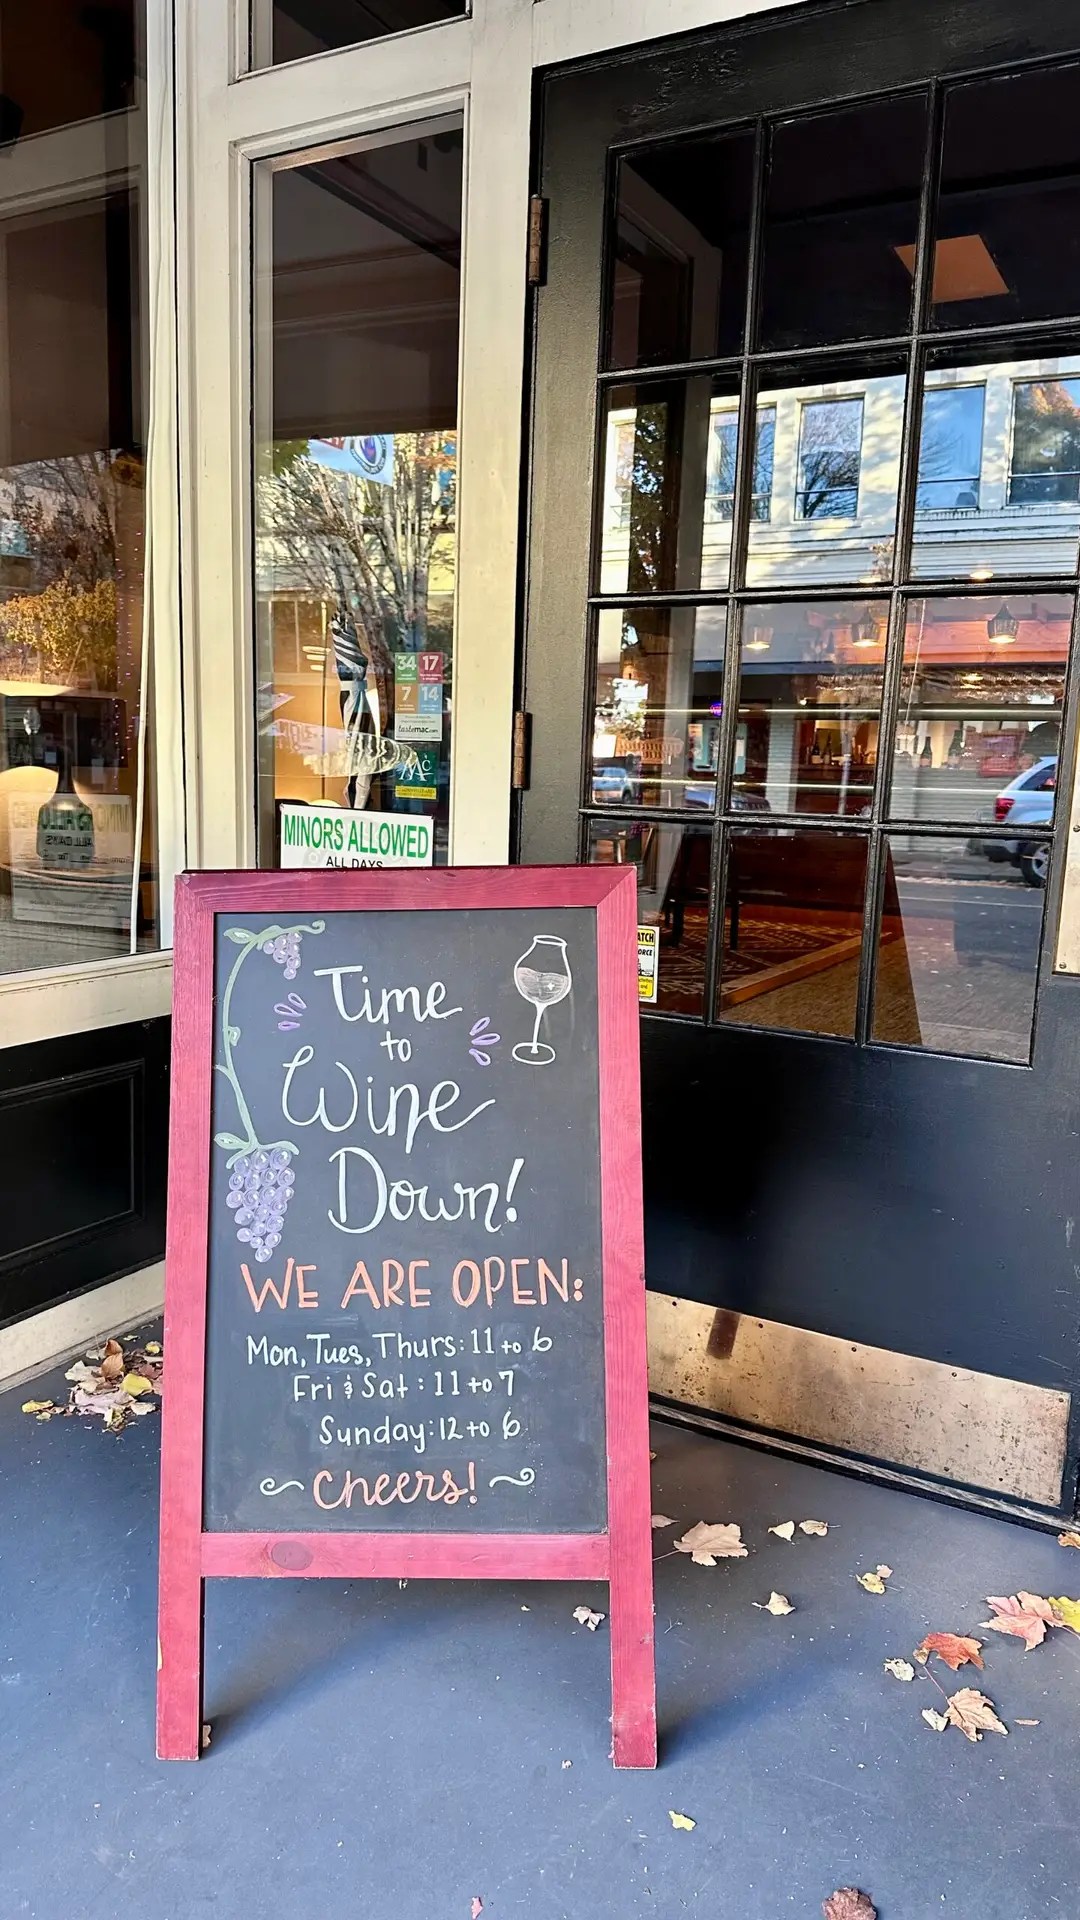 34 17
7 14
tastemac.com
Mc
MINORS ALLOWED
ALL DAYS
Time
to
Wine
Down!
WE ARE OPEN:
Mon, Tues, Thurs: 11 to 6
Fri & Sat: 11 to 7
Sunday: 12 to 6
Cheers!